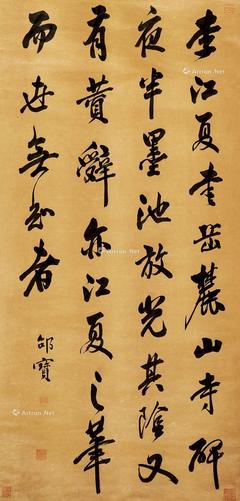 李江夏書岳麓山寺碑
夜半墨池放光其陰又
有贊辭亦江夏之筆
而世無知者
邵寶
Artron.Net
Artron.Net
Artron.Net
Artron.Net